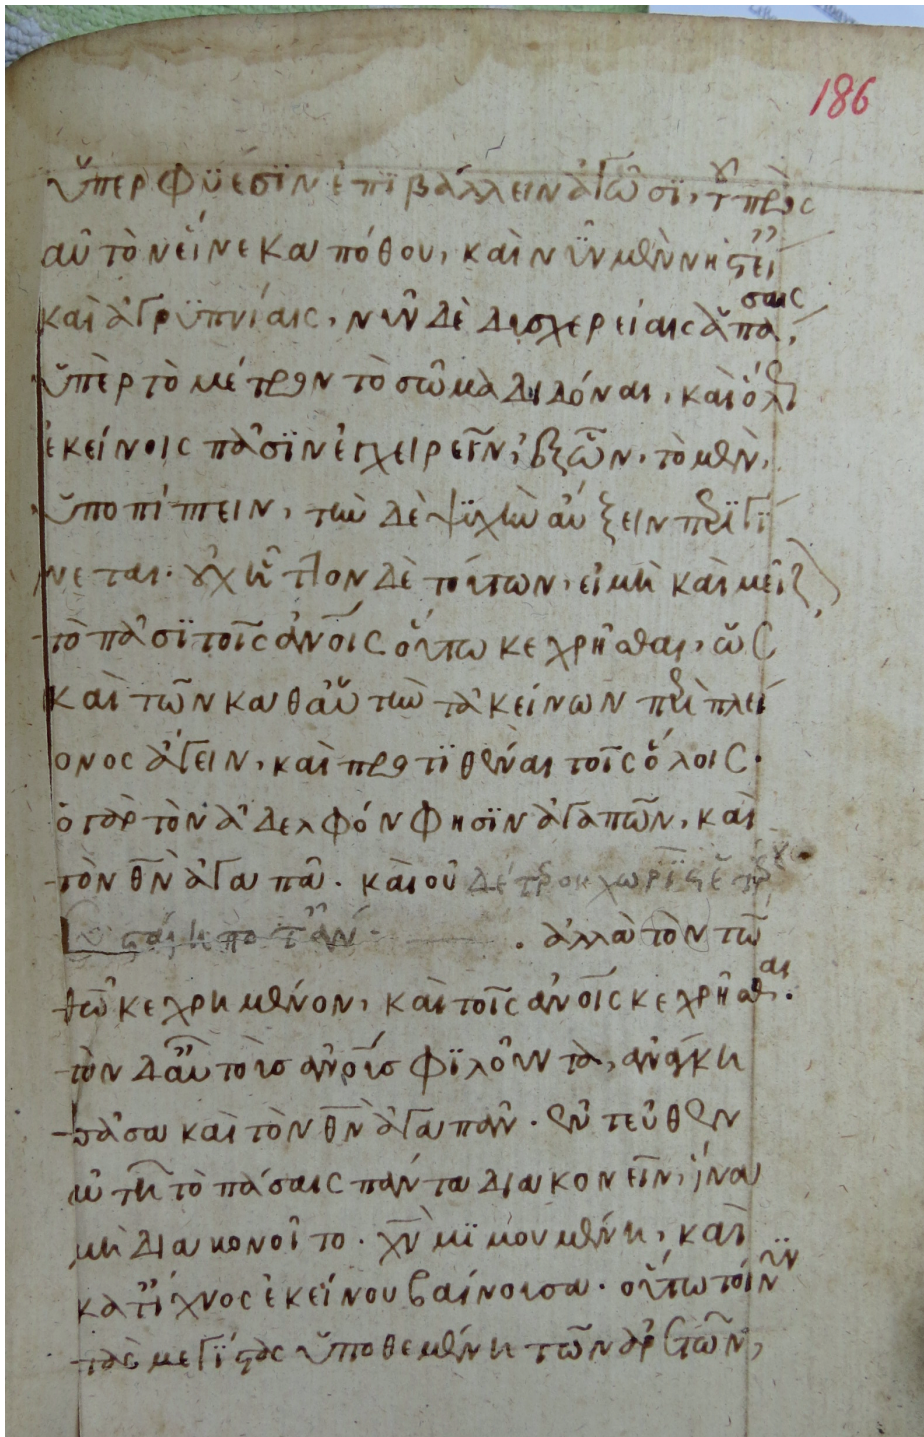 186
ὑπερφυέσιν ἐπιβάλλειν ἀγῶσι,
αὐτὸν εἵνεκα πόθου, καὶ νῦν μὲν νηστεί
σαις
καὶ ἀγρυπνίαις, νῦν δὲ δυσχερείαις ἁπά,
ὑπὲρ τὸ μέτρον τὸ σῶμα διδόναι, καὶ
ἐκείνοις πᾶσιν ἐγχειρεῖν, τὸ μὲν,
ὑποπίπτειν, τὴν δὲ ψυχὴν αὔξειν περιγί
νεται. οὐχ ἧττον δὲ τούτων, εἰ μὴ καὶ μεῖζ
τὸ πᾶσι τοῖς ἀνοις οὕτω κεχρῆσθαι, ὡς
καὶ τῶν καθ' αὑτὴν τἀκείνων περὶ πλεί
ονος ἄγειν, καὶ προτιθέναι τοῖς ὅλοις.
ὁ γὰρ τὸν ἀδελφόν φησιν ἀγαπῶν, καὶ
τὸν θν ἀγαπᾷ. καὶ οὐ
. ἀλλὰ τὸν τῶ
θῶ κεχρημένον, καὶ τοῖς ἀνοις κεχρῆσθαι.
τὸν δ' αὖ τοὺς ἀνους φιλοῦντα, ἀνάγκη
πᾶσα καὶ τὸν θν ἀγαπᾶν. ἐντεῦθεν
αὐτῆ τὸ πάσαις πάντα διακονεῖν, ἵνα
μὴ διακονοῖτο. χν μιμουμένη, καὶ
κατ' ἴχνος ἐκείνου βαίνουσα. οὕτω τοίνυν
τὰς μεγίστας ὑποθεμένη τῶν ἀρετῶν,